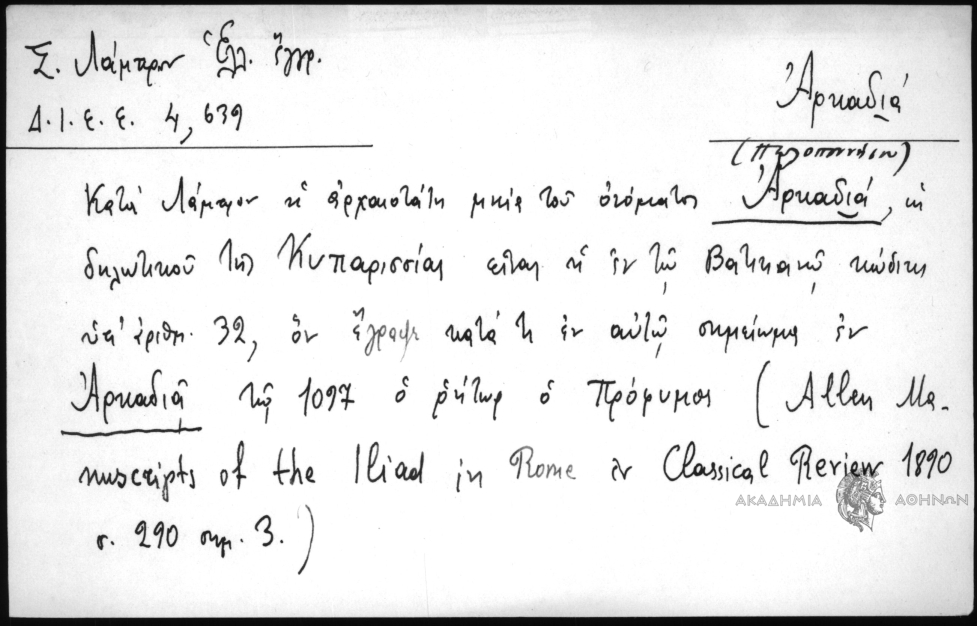 Σ. Λάμπρου Ἑλλ. ἔγγρ.
Δ.Ι.Ε.Ε. 4, 639
Ἀρκαδιά
(Πελοποννήσου)
Κατὰ Λάμπρον ἡ ἀρχαιοτάτη μνεία τοῦ ὀνόματος Ἀρκαδιά, ὡς
δηλωτικοῦ τῆς Κυπαρισσίας εἶναι ἡ ἐν τῷ Βατικανῷ κώδικι
ὑπ' ἀριθμ. 32, ὃν ἔγραψε κατὰ τὸ ἐν αὐτῷ σημείωμα ἐν
Ἀρκαδιᾷ τῷ 1097 ὁ ῥήτωρ ὁ (Allen Ma-
nuscripts of the Iliad in Rome ἐν Classical Review 1890
σ. 290 σημ. 3.)
ΑΚΑΔΗΜΙΑ ΑΘΗΝΩΝ